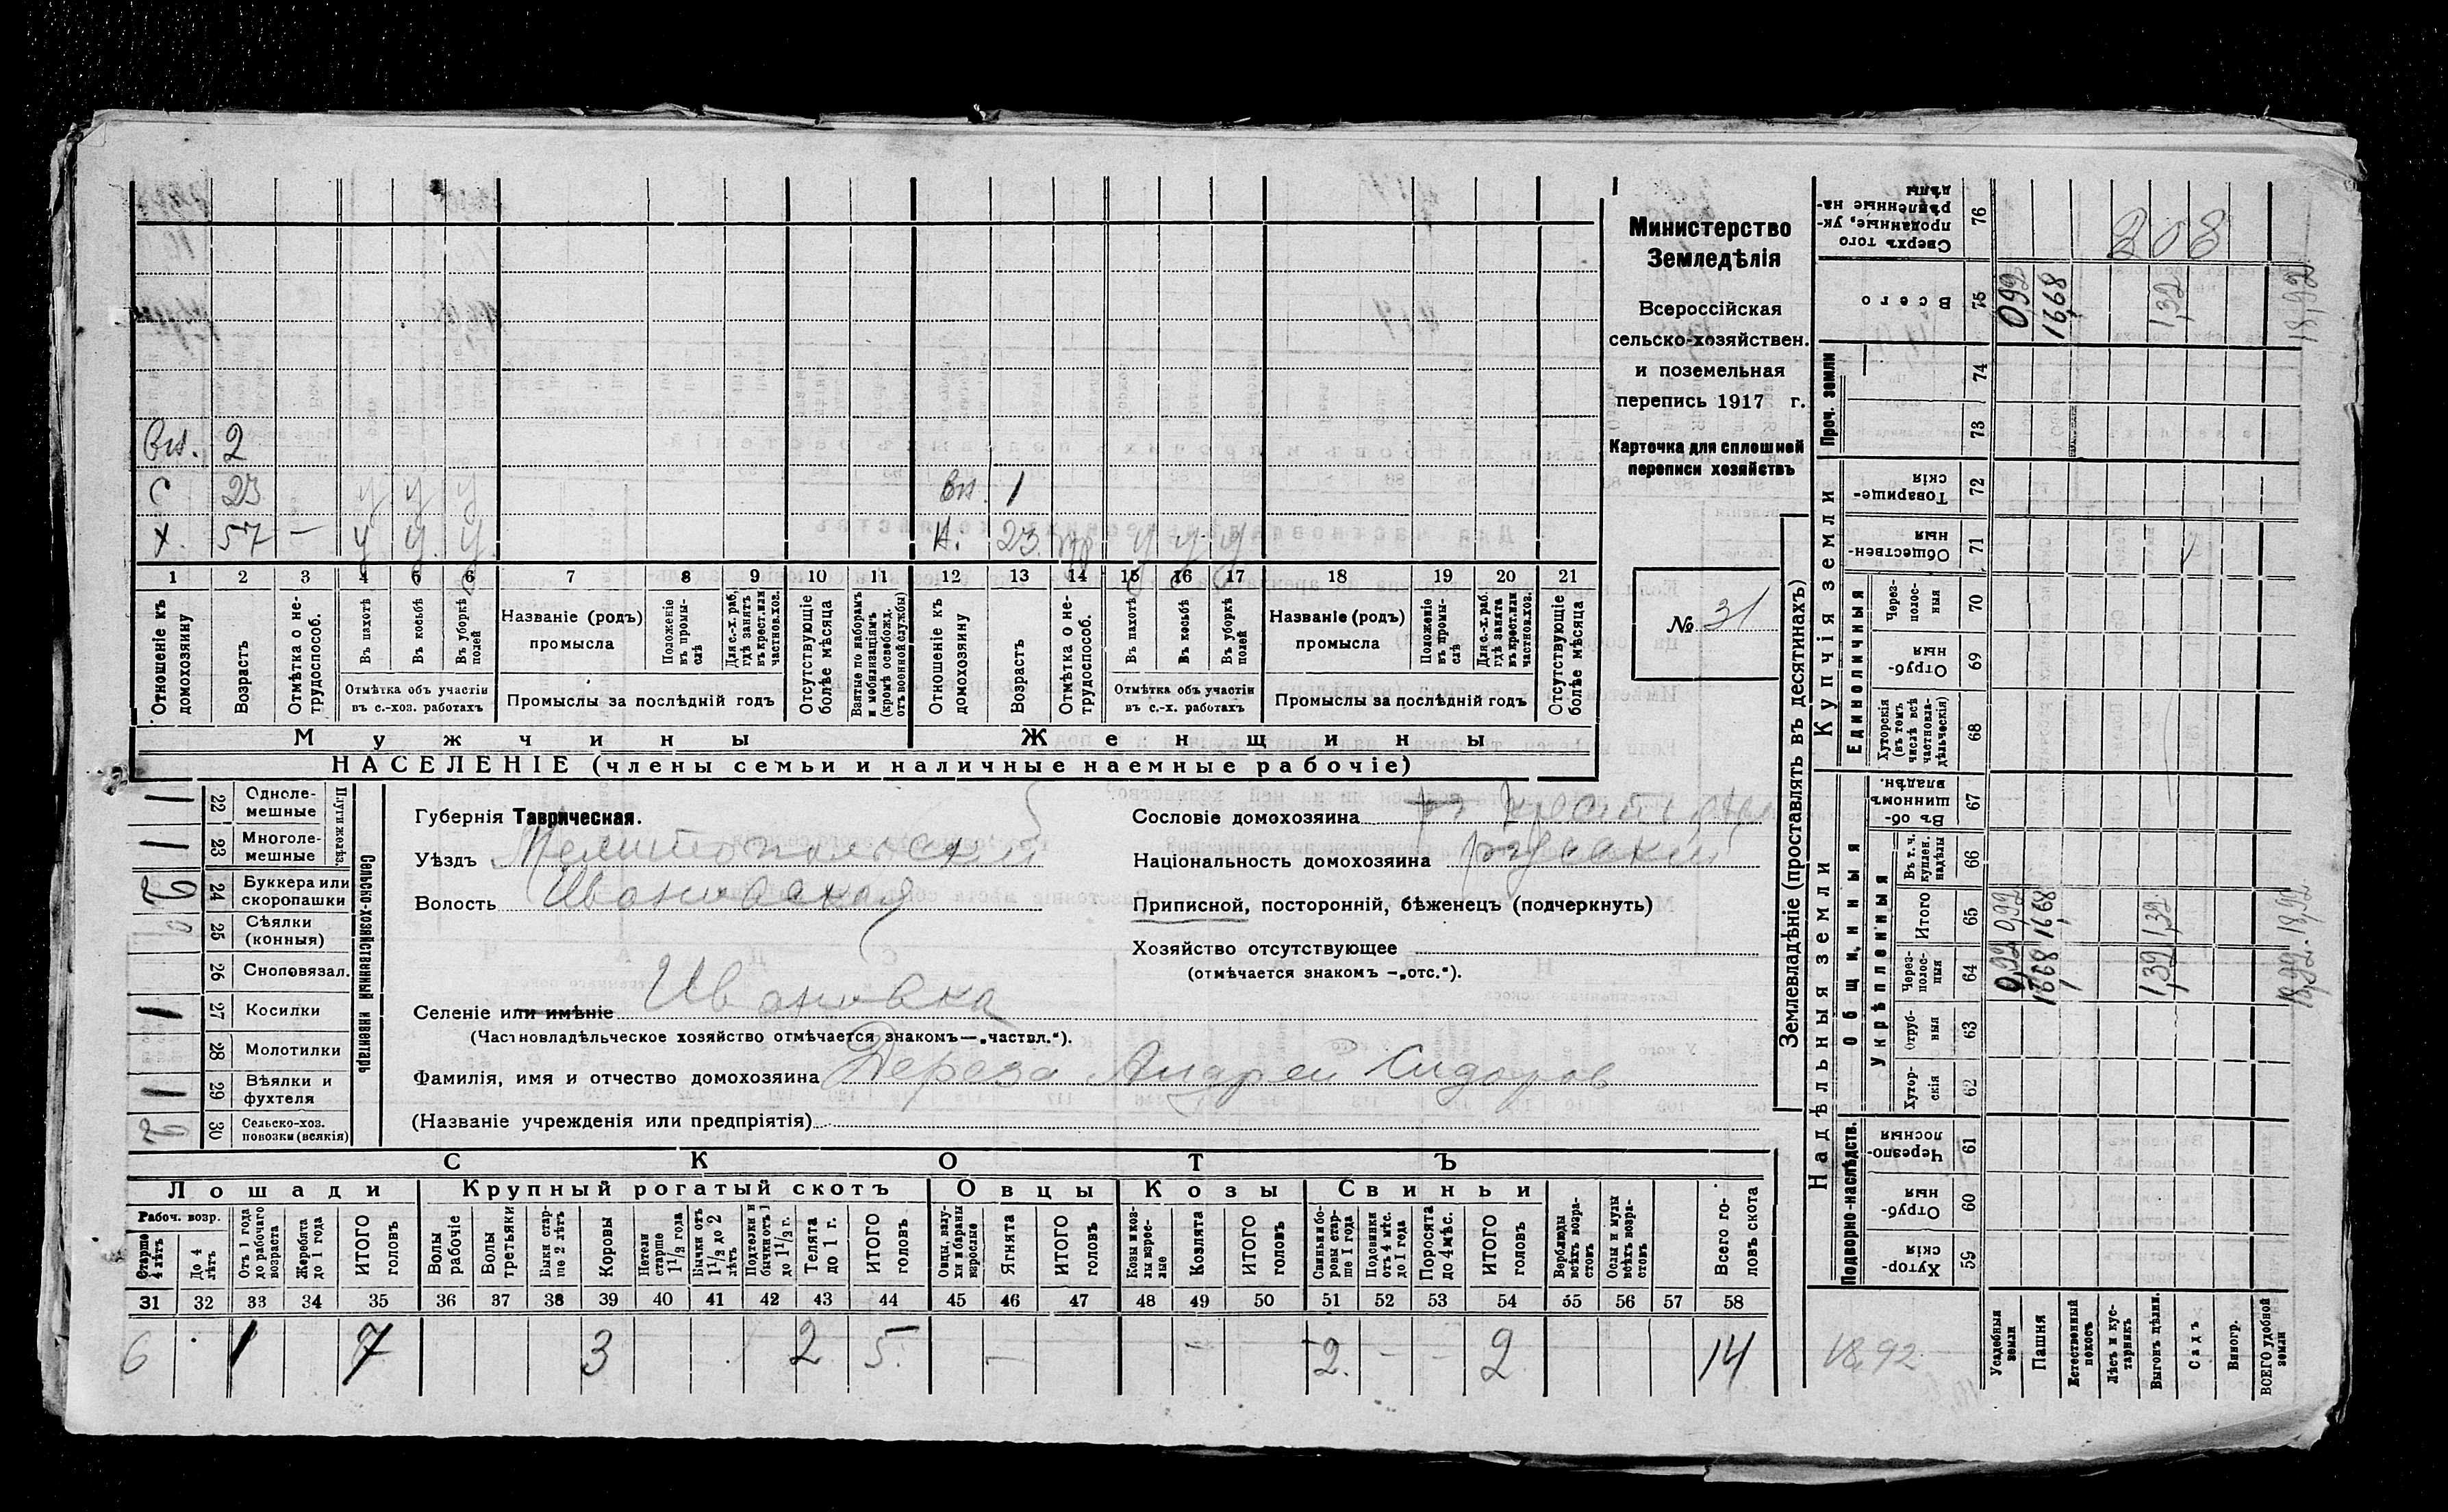 Министерство
Земледѣлія
Всероссійская
сельско-хозяйствен.
и поземельная
перепись 1917 г.
Карточка для сплошной
переписи хозяйствъ
№ 31
Вн. 2
С 23 у у у
Х. 57 — у у у
Вн. 1
Н. 23 у у у
1 2 3 4 5 6 7 8 9 10 11 12 13 14 15 16 17 18 19 20 21
Отношеніе къ домохозяину
Возрастъ
Отмѣтка о не-трудоспособ.
Въ пахотѣ
Въ косьбѣ
Въ уборкѣ полей
Отмѣтка объ участіи
въ с.-хоз. работахъ
Названіе (родъ)
промысла
Положеніе въ промы-слѣ
Для с.-х. раб., гдѣ занятъ въ крест. или частнов. хоз.
Промыслы за послѣдній годъ
Отсутствующіе болѣе мѣсяца
Взятые по наборамъ и мобилизаціямъ (кромѣ освобожд. отъ военной службы)
Отношеніе къ домохозяину
Возрастъ
Отмѣтка о не-трудоспособ.
Въ пахотѣ
Въ косьбѣ
Въ уборкѣ полей
Отмѣтка объ участіи
въ с.-х. работахъ
Названіе (родъ)
промысла
Положеніе въ промы-слѣ
Для с.-х. раб. гдѣ занята въ крест. или частнов. хоз.
Промыслы за послѣдній годъ
Отсутствующіе болѣе мѣсяца
Мужчины Женщины
НАСЕЛЕНІЕ (члены семьи и наличные наемные рабочіе)
Сельско-хозяйственный инвентарь
1 22 Однолемешные
1 23 Многолемешные
2 24 Буккера или скоропашки
25 Сѣялки (конныя)
26 Сноповязал.
1 27 Косилки
28 Молотилки
1 29 Вѣялки и фухтеля
2 30 Сельско-хоз. повозки (всякія)
Губернія Таврическая.
Уѣздъ Мелитопольский
Волость Ивановская
Сословіе домохозяина
Національность домохозяина русский
Приписной, посторонній, бѣженецъ (подчеркнуть)
Хозяйство отсутствующее
(отмѣчается знакомъ —„отс.“).
Селеніе или имѣніе Ивановка
(Частновладѣльческое хозяйство отмѣчается знакомъ—„частвл.“).
Фамилія, имя и отчество домохозяина Дереза Андрей Сидоров
(Названіе учрежденія или предпріятія)
СКОТЪ
Лошади Крупный рогатый скотъ Овцы Козы Свиньи
Рабоч. возр.
Старше 4 лѣтъ
До 4 лѣтъ
Отъ 1 года до рабочаго возраста
Жеребята до 1 года
ИТОГО головъ
Волы рабочіе
Волы третьяки
Быки старше 2 лѣтъ
Коровы
Нетели старше 1 1/2 года
Бычки отъ 1 1/2 до 2 лѣтъ
Подтелки и бычки отъ 1 до 1 1/2 г.
Телята до 1 г.
ИТОГО головъ
Овцы, валухи и бараны взрослые
Ягнята
ИТОГО головъ
Козы и козлы взрослые
Козлята
ИТОГО головъ
Свиньи и боровы старше 1 года
Подсвинки отъ 4 мѣс. до 1 года
Поросята до 4 мѣс.
ИТОГО головъ
Верблюды всѣхъ возрастовъ
Ослы и мулы всѣхъ возрастовъ
Всего головъ скота
31 32 33 34 35 36 37 38 39 40 41 42 43 44 45 46 47 48 49 50 51 52 53 54 55 56 57 58
6 1 7 3 2 5 — - 2 - - 2 14
Землевладѣніе (проставлять въ десятинахъ)
Купчія земли
Надѣльныя земли
Проч. земли
Единоличныя
Общинныя
Укрѣпленныя
Подворно-наслѣдств.
Сверхъ того проданные, укрѣпленные надѣлы 76 208
Всего 75 0,92 16,68 1,32 18,92
74
73
Товарищескія 72
Общественныя 71
Черезполосныя 70
Отрубныя 69
Хуторскія (въ томъ числѣ всѣ частновладѣльческія) 68
Въ общинномъ владѣн. 67
Въ т. ч. куплен. надѣлы 66
Итого 65 0,92 16,68 1,32 18,92
Черезполосныя 64 0,92 16,68 1,32 18,92
Отрубныя 63
Хуторскія 62
Черезполосныя 61
Отрубныя 60
Хуторскія 59
Усадебныя земли
Пашня
Естественный покосъ
Лѣсъ и кустарникъ
Выгонъ цѣлин.
Садъ
Виногр.
ВСЕГО удобной земли
18,92